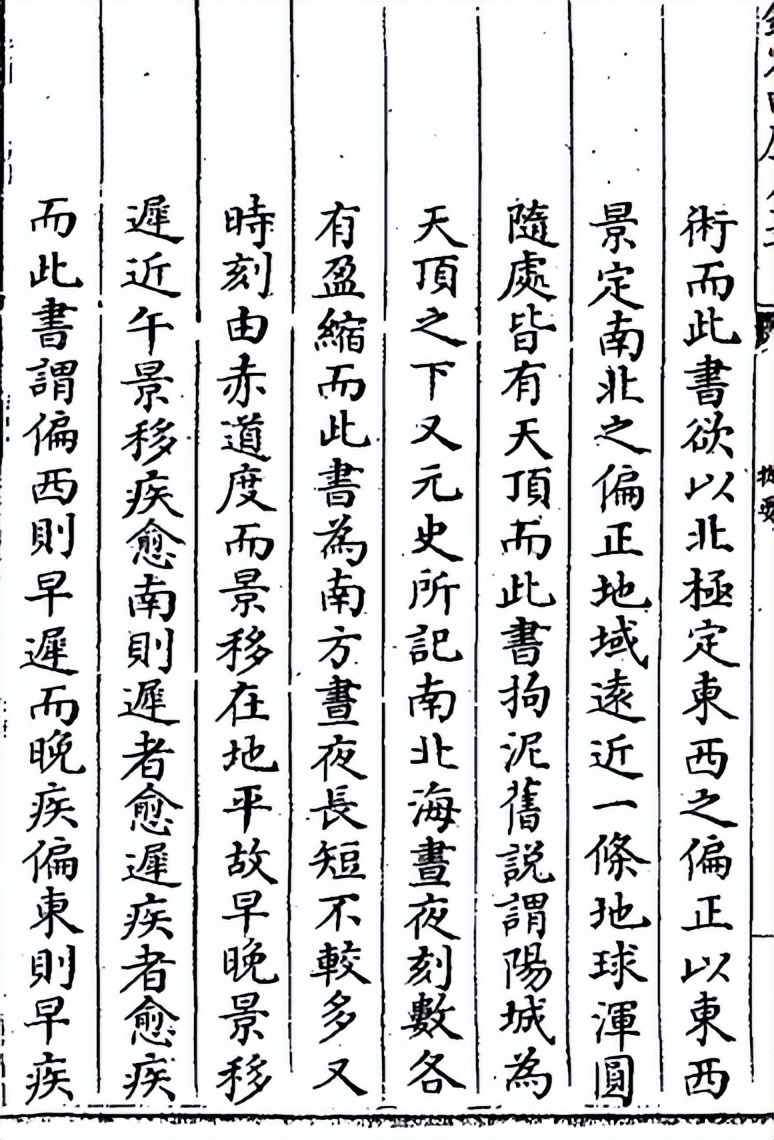 提要
術而此書欲以北極定東西之偏正以東西
景定南北之偏正地域遠近一條地球渾圓
隨處皆有天頂而此書拘泥舊説謂陽城為
天頂之下又元史所記南北海晝夜刻數各
有盈縮而此書為南方晝夜長短不較多又
時刻由赤道度而景移在地平故早晚景移
遲近午景移疾愈南則遲者愈遲疾者愈疾
而此書謂偏西則早遲而晚疾偏東則早疾